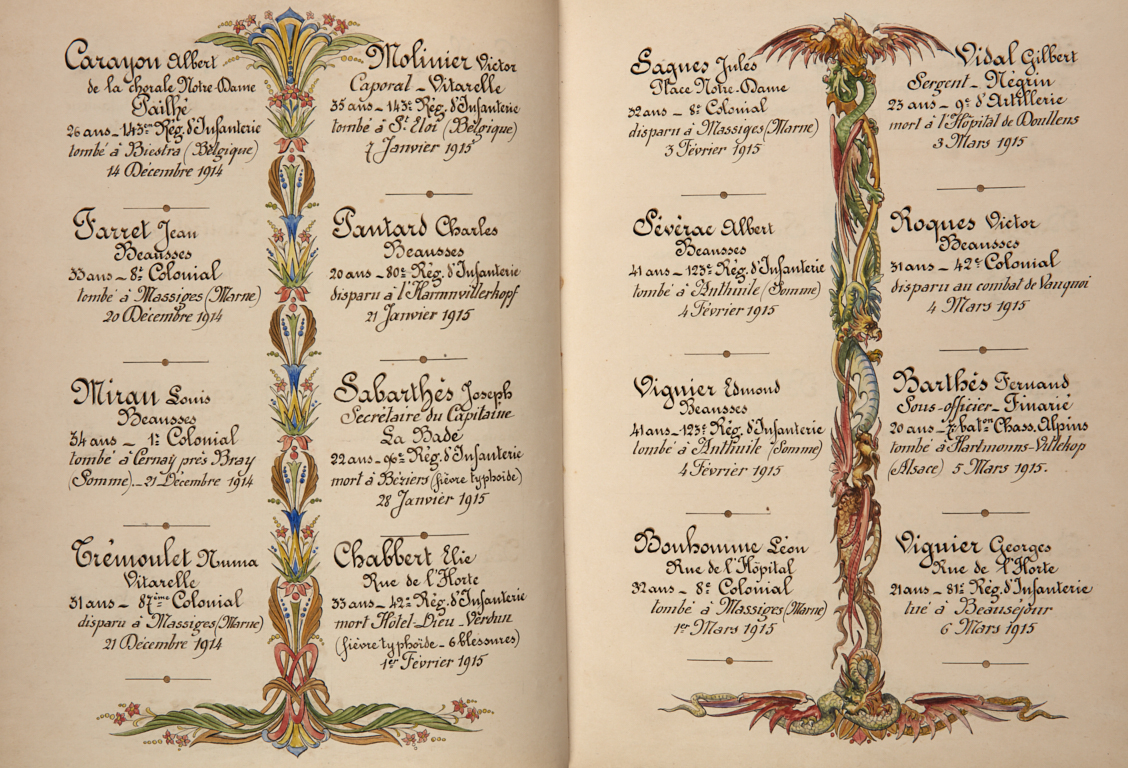 Carayon Albert
de la chorale Notre-Dame
Pailhé
26 ans _ 143me Rég. d'Infanterie
tombé à Biestra (Belgique)
14 Décembre 1914
Farret Jean
Beausses
33 ans _ 8e Colonial
tombé à Massiges (Marne)
20 Décembre 1914
Miran Louis
Beausses
34 ans _ 1e Colonial
tombé à Cernay près Bray
(Somme) _ 21 Décembre 1914
Trémoulet Numa
Vitarelle
31 ans _ 87ème Colonial
disparu à Massiges (Marne)
21 Décembre 1914
Molinier Victor
Caporal _ Vitarelle
35 ans _ 143e Rég. d'Infanterie
tombé à St Eloi (Belgique)
7 Janvier 1915
Pantard Charles
Beausses
20 ans _ 80e Rég. d'Infanterie
disparu à l'Harmnvillerkopf
21 Janvier 1915
Sabarthés Joseph
Secrétaire du Capitaine
La Bade
22 ans _ 96e Rég. d'Infanterie
mort à Béziers (fièvre typhoïde)
28 Janvier 1915
Chabbert Elie
Rue de l'Horte
33 ans _ 42e Rég. d'Infanterie
mort Hôtel-Dieu _ Verdun
(fièvre typhoïde _ 6 blessures)
1er Février 1915
Sagnes Jules
Place Notre-Dame
32 ans _ 8e Colonial
disparu à Massiges (Marne)
3 Février 1915
Sévérac Albert
Beausses
41 ans _ 123e Rég. d'Infanterie
tombé à Anthuile (Somme)
4 Février 1915
Viguier Edmond
Beausses
41 ans _ 123e Rég. d'Infanterie
tombé à Anthuile (Somme)
4 Février 1915
Bonhomme Léon
Rue de l'Hôpital
32 ans _ 8e Colonial
tombé à Massiges (Marne)
1er Mars 1915
Vidal Gilbert
Sergent _ Négrin
23 ans _ 9e d'Artillerie
mort à l'Hôpital de Doullens
3 Mars 1915
Roques Victor
Beausses
31 ans _ 42e Colonial
disparu au combat de Vauquoi
4 Mars 1915
Barthés Fernand
Sous-officier _ Finarié
20 ans _ 7e baton Chass. Alpins
tombé à Hartmonns-Villekop
(Alsace) 5 Mars 1915.
Viguier Georges
Rue de l'Horte
21 ans _ 81e Rég. d'Infanterie
tué à Beauséjour
6 Mars 1915